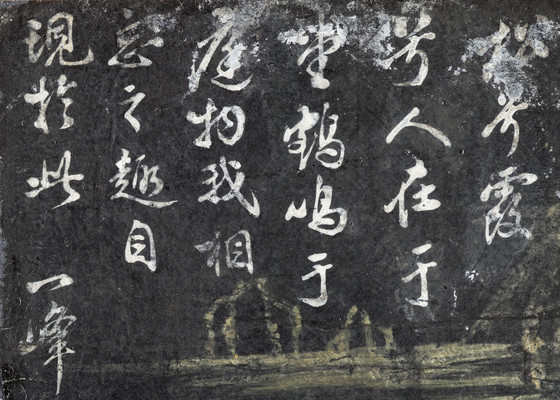 松兮霞
兮人在于
堂鶴鳴于
庭物我相
忘之趣自
現於此
一峯